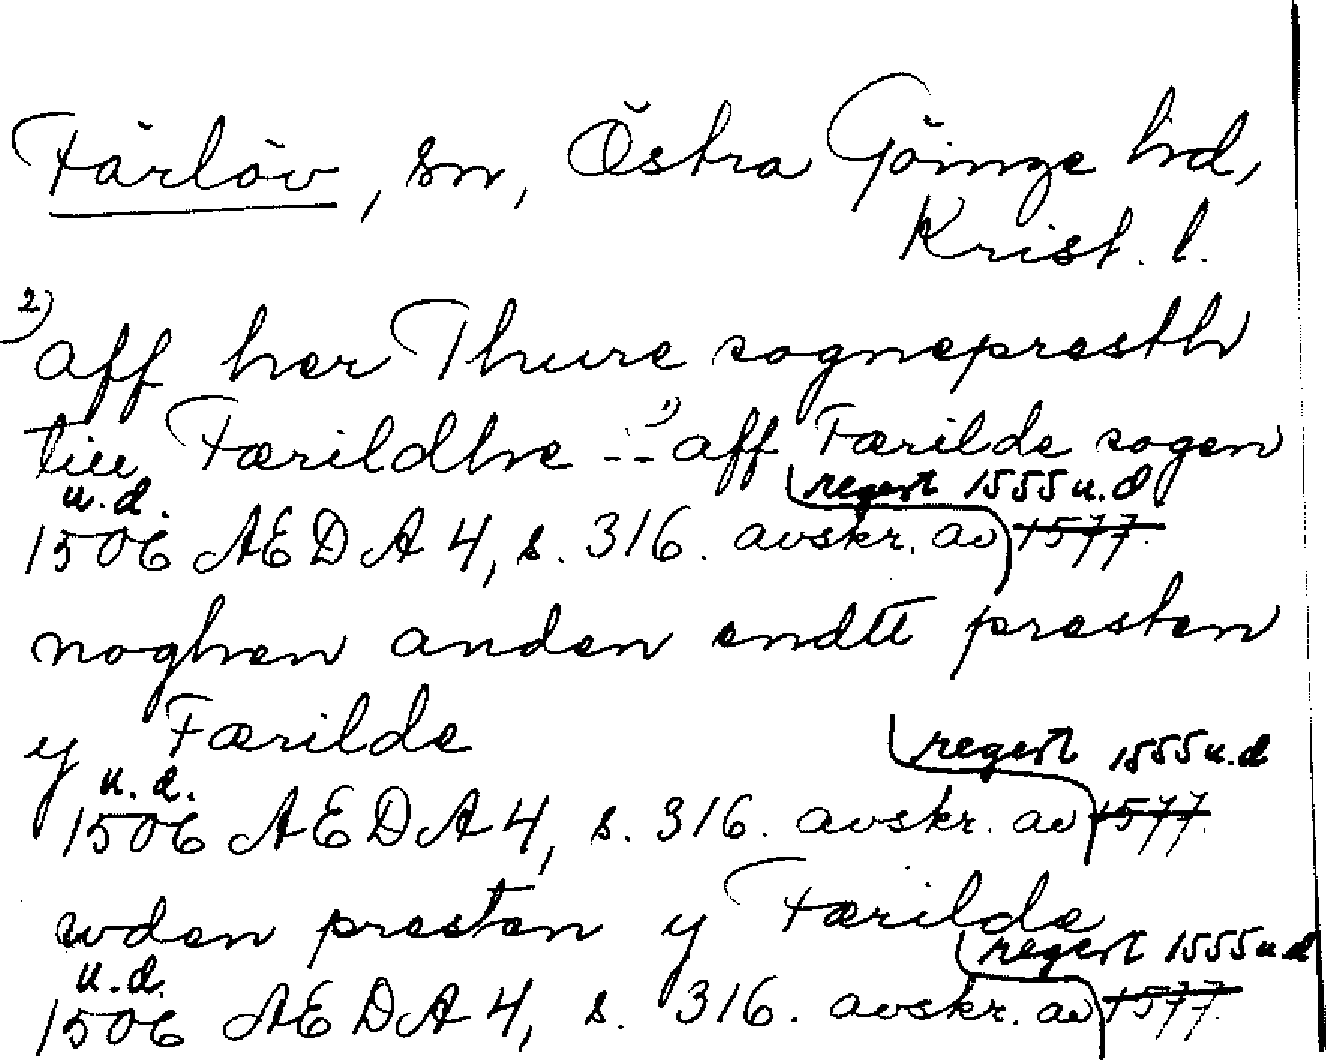 Färlöv, sn, Östra Göinge hd,
Krist. l.
2) aff her Thure sognepresth
till Færildhe --- 1) aff Færilde sogen
u.d. regest 1555 u.d
1506 AEDA 4, s. 316. avskr. av 1577.
noghen anden endtt presten
y Færilde
u.d. regest 1555 u.d
1506 AEDA 4, s. 316. avskr. av 1577.
wden presten y Færilde
u.d. regest 1555 u d
1506 AEDA 4, s. 316. avskr. av 1577.